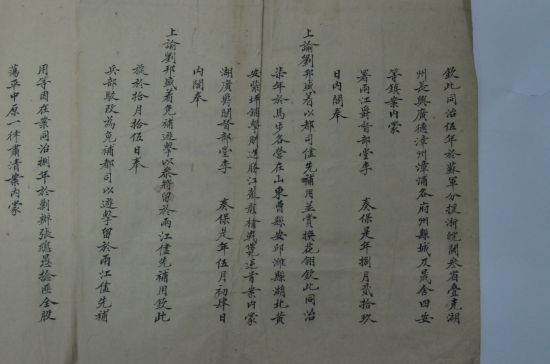 欽此同治伍年於蘇軍分援浙皖閩叁省疊克湖
州長興廣德漳州漳浦各府州縣城及晟舍四安
等鎮案内蒙
署兩江爵督部堂李 奏保是年捌月貳拾玖
日内閣奉
上諭劉邦盛着以都司儘先補用並賞換花翎欽此同治
柒年於馬步各營在山東曹縣安邱濰縣湖北黄
安紫坪鋪擊剿逆勝仗
湖廣爵閣督部堂李 奏保是年伍月初肆日
内閣奉
上諭劉邦盛着免補遊擊以叅將留於兩江儘先補用欽此
旋於拾月拾伍日奉
兵部駁改為免補都司以遊擊留於兩江儘先補
用等因在案同治捌年於剿辦張總愚捻匪全股
蕩平中原一律肅清案内蒙